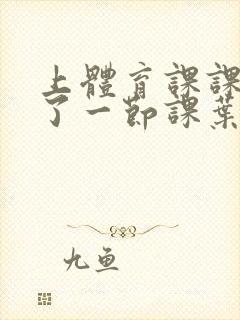 上體育課課
了一節課葉
九鱼